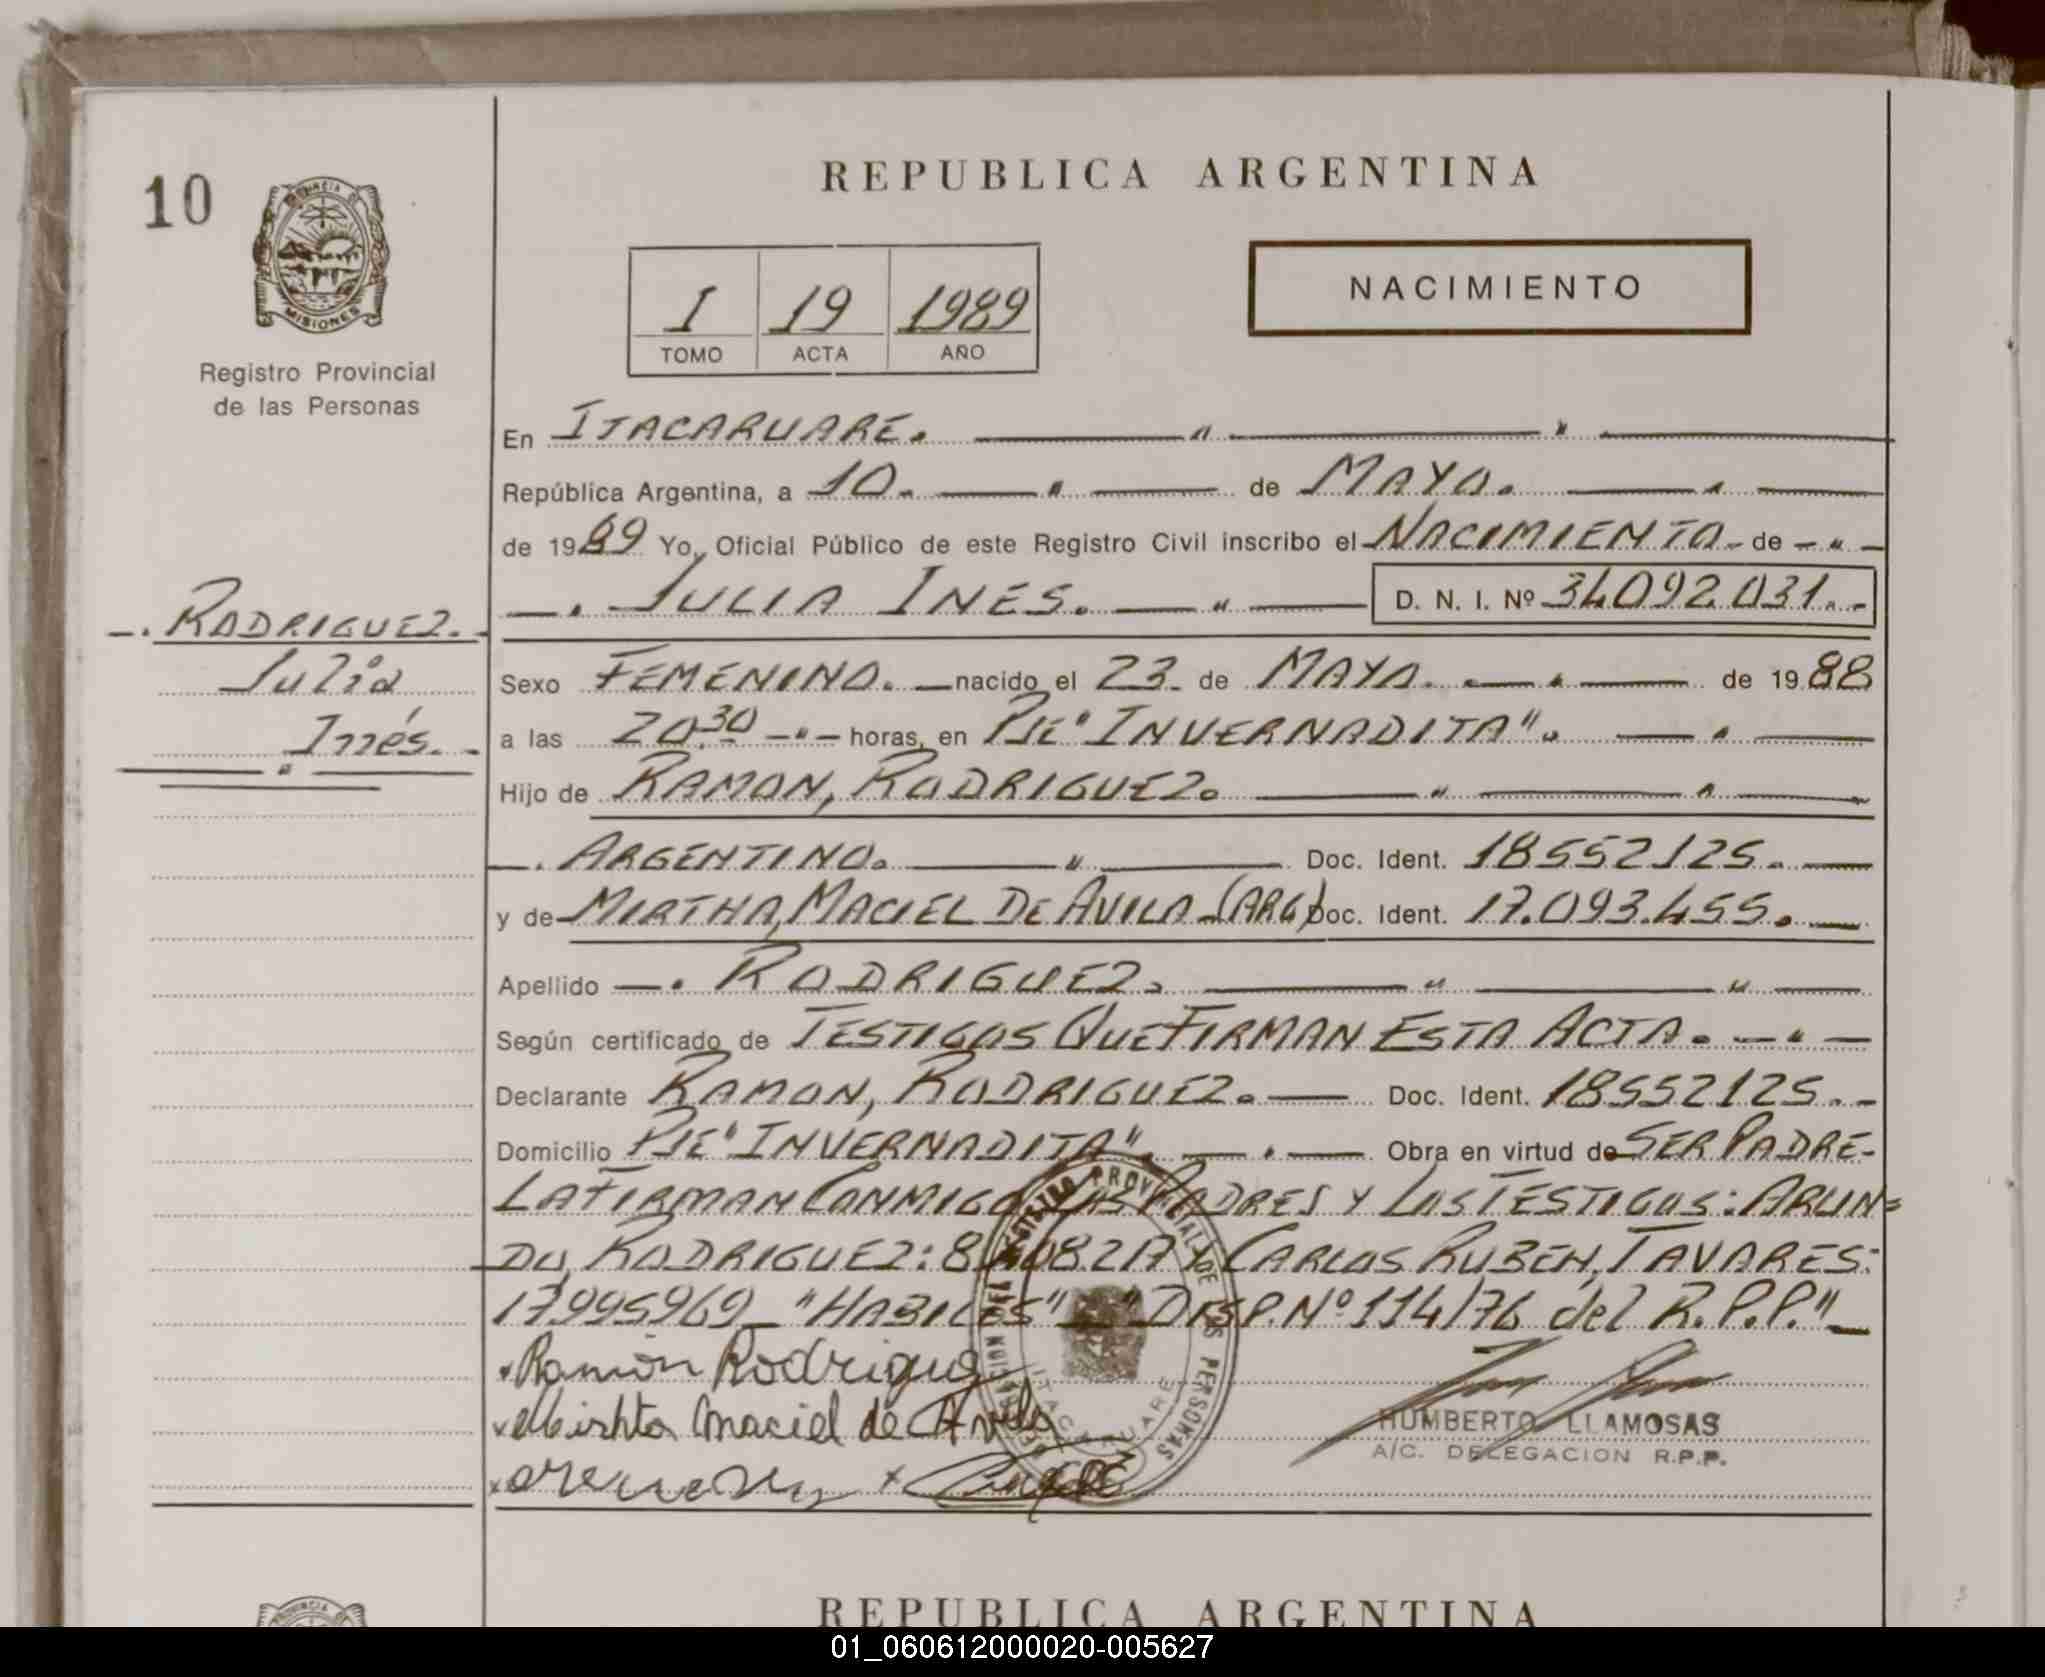 10
PROVINCIA DE
MISIONES
Registro Provincial
de las Personas
REPUBLICA ARGENTINA
I 19 1989
TOMO ACTA AÑO
NACIMIENTO
En ITACARUARE.
República Argentina, a 10. de MAYO.
de 1989 Yo, Oficial Público de este Registro Civil inscribo el NACIMIENTO de
JULIA INES. D. N. I. Nº 34092.031.
RODRIGUEZ.
Julia
Inés.
Sexo FEMENINO. nacido el 23 de MAYO. de 1988
a las 20.30 horas, en PJE "INVERNADITA".
Hijo de RAMON, RODRIGUEZ.
ARGENTINO. Doc. Ident. 18552125.
y de MIRTHA, MACIEL DE AVILA (ARG) Doc. Ident. 17.093.455.
Apellido RODRIGUEZ.
Según certificado de TESTIGOS QUE FIRMAN ESTA ACTA.
Declarante RAMON, RODRIGUEZ. Doc. Ident. 18552125.
Domicilio PJE "INVERNADITA". Obra en virtud de SER PADRE-
LA FIRMAN CONMIGO LOS PADRES Y LOS TESTIGOS: ARLIN=
DO, RODRIGUEZ: Y CARLOS RUBEN, TAVARES:
17995969 "HABILES" "DISP. Nº 114/76 del R.P.P."
Ramón Rodriguez
Mirhta Maciel de Avila
HUMBERTO LLAMOSAS
A/C. DELEGACION R.P.P.
REGISTRO PROVINCIAL DE LAS PERSONAS
ITACARUARE
PROVINCIA
REPUBLICA ARGENTINA
01_060612000020-005627